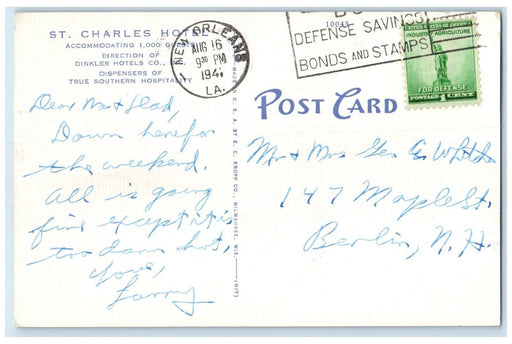 ST. CHARLES HOTEL
ACCOMMODATING 1,000 GUESTS
DIRECTION OF
DINKLER HOTELS CO.,
DISPENSERS OF
TRUE SOUTHERN HOSPITALITY
NEW ORLEANS
AUG 16
9 30 PM
1941
LA.
10043
DEFENSE SAVINGS
BONDS AND STAMPS
UNITED STATES OF AMERICA
INDUSTRY AGRICULTURE
FOR DEFENSE
POSTAGE 1 CENT
POST CARD
MADE IN U. S. A. BY E. C. KROPP CO., MILWAUKEE, WIS.
Dear Ma & Dad,
Down here for
the weekend.
All is going
fine except it is
too darn hot,
Yours,
Larry
Mr & Mrs Geo E
147 Maple St.
Berlin, N. H.